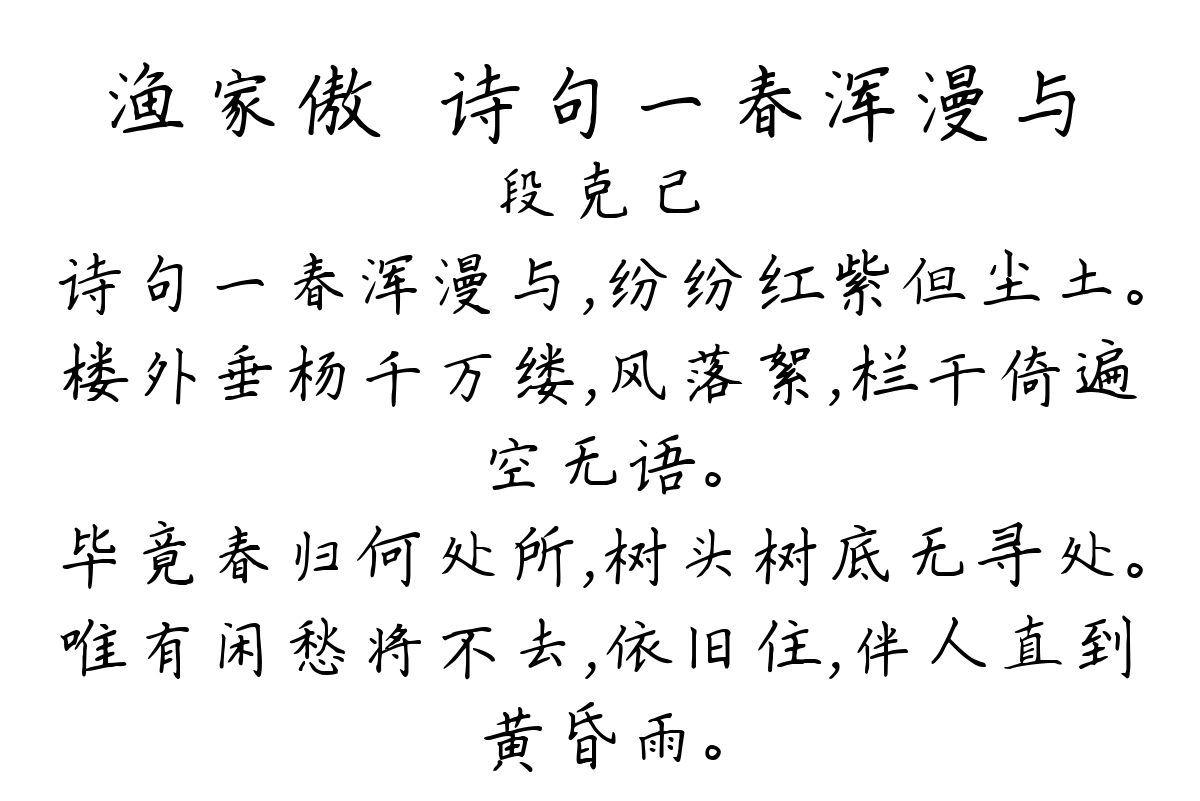 渔家傲 诗句一春浑漫与
段克己
诗句一春浑漫与,纷纷红紫但尘土。
楼外垂杨千万缕,风落絮,栏干倚遍
空无语。
毕竟春归何处所,树头树底无寻处。
唯有闲愁将不去,依旧住,伴人直到
黄昏雨。